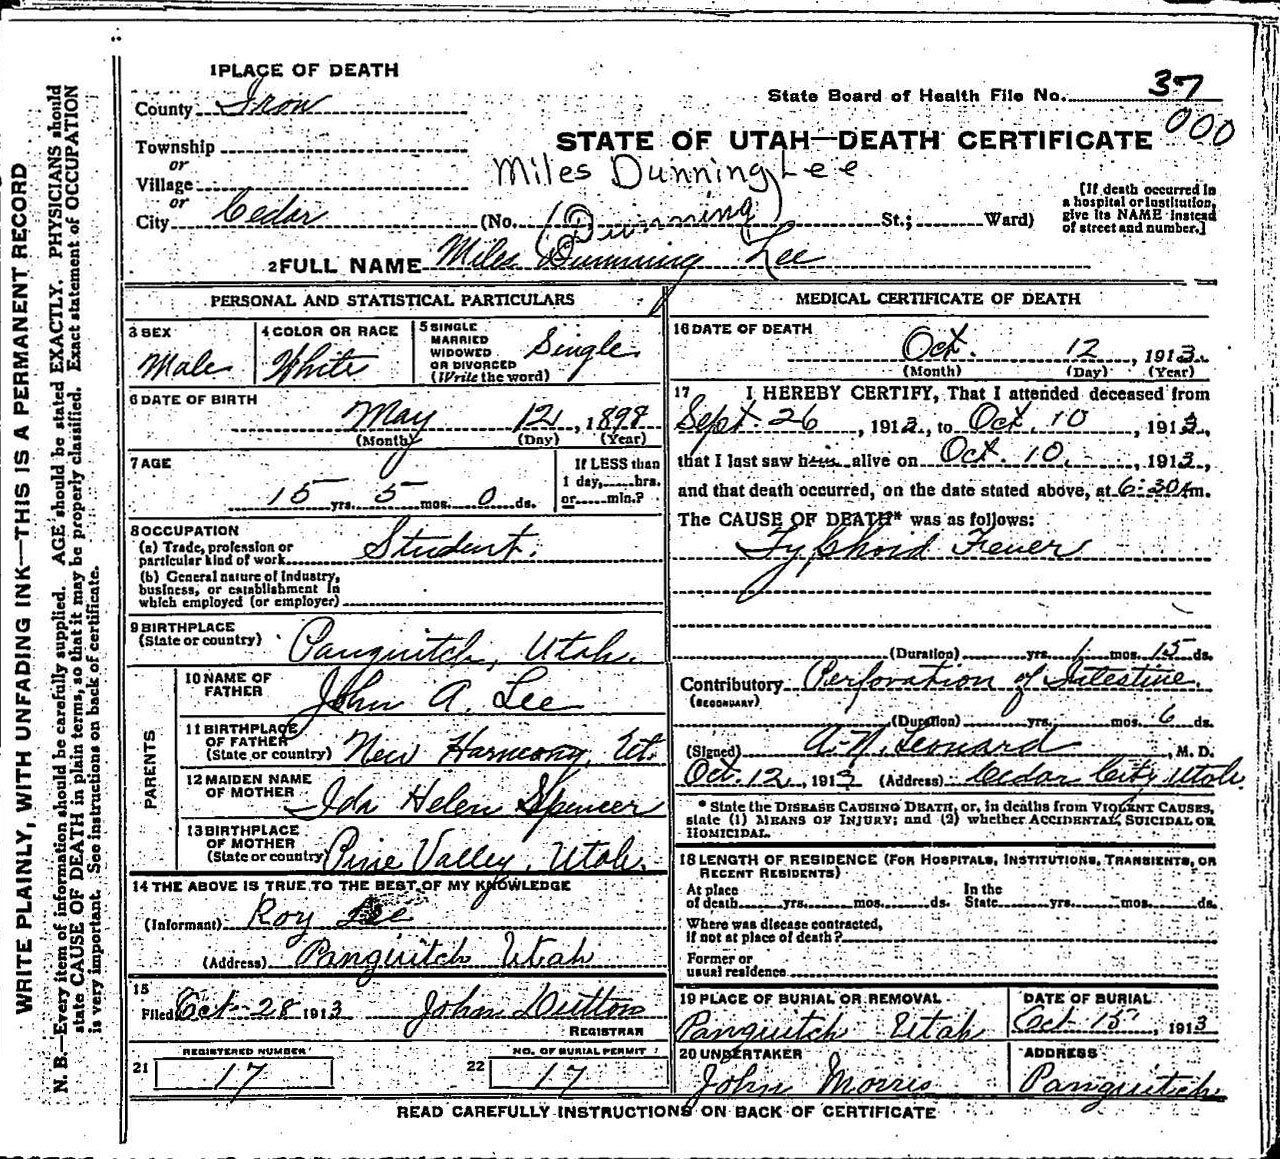 1 PLACE OF DEATH
County Iron
Township
or
Village
or
City Cedar (No. St.; Ward)
State Board of Health File No. 37
000
STATE OF UTAH—DEATH CERTIFICATE
Miles Dunning Lee
[If death occurred in
a hospital or institution,
give its NAME instead
of street and number.]
(Dunning)
2 FULL NAME Miles Dunning Lee
PERSONAL AND STATISTICAL PARTICULARS
3 SEX
Male
4 COLOR OR RACE
White
5 SINGLE
MARRIED
WIDOWED
OR DIVORCED
(Write the word)
Single
6 DATE OF BIRTH
May 12, 1898
(Month) (Day) (Year)
7 AGE
15 yrs. 5 mos. 0 ds.
If LESS than
1 day, hrs.
or min.?
8 OCCUPATION
(a) Trade, profession or
particular kind of work Student.
(b) General nature of industry,
business, or establishment in
which employed (or employer)
9 BIRTHPLACE
(State or country) Panguitch, Utah.
PARENTS
10 NAME OF
FATHER John A. Lee
11 BIRTHPLACE
OF FATHER
(State or country) New Harmony, Ut.
12 MAIDEN NAME
OF MOTHER Ida Helen Spencer
13 BIRTHPLACE
OF MOTHER
(State or country) Pine Valley, Utah.
14 THE ABOVE IS TRUE TO THE BEST OF MY KNOWLEDGE
(Informant) Roy Lee
(Address) Panguitch Utah
15
Filed Oct-28 1913 John Dutton
REGISTRAR
21 REGISTERED NUMBER
17
22 NO. OF BURIAL PERMIT
17
MEDICAL CERTIFICATE OF DEATH
16 DATE OF DEATH
Oct. 12, 1913.
(Month) (Day) (Year)
17 I HEREBY CERTIFY, That I attended deceased from
Sept. 26, 1913, to Oct. 10, 1913,
that I last saw him alive on Oct. 10, 1913,
and that death occurred, on the date stated above, at 6:30 Am.
The CAUSE OF DEATH* was as follows:
Typhoid Fever
(Duration) yrs. 1 mos. 15 ds.
Contributory Perforation of Intestine.
(SECONDARY)
(Duration) yrs. mos. 6 ds.
(Signed) A. N. Leonard, M. D.
Oct. 12, 1913 (Address) Cedar City, Utah.
* State the DISEASE CAUSING DEATH, or, in deaths from VIOLENT CAUSES,
state (1) MEANS OF INJURY; and (2) whether ACCIDENTAL, SUICIDAL OR
HOMICIDAL.
18 LENGTH OF RESIDENCE (FOR HOSPITALS, INSTITUTIONS, TRANSIENTS, OR
RECENT RESIDENTS)
At place
of death yrs. mos. ds.
In the
State yrs. mos. ds.
Where was disease contracted,
if not at place of death?
Former or
usual residence
19 PLACE OF BURIAL OR REMOVAL
Panguitch Utah
DATE OF BURIAL
Oct 15, 1913
20 UNDERTAKER
John Morris
ADDRESS
Panguitch
READ CAREFULLY INSTRUCTIONS ON BACK OF CERTIFICATE
WRITE PLAINLY, WITH UNFADING INK—THIS IS A PERMANENT RECORD
N. B.—Every item of information should be carefully supplied. AGE should be stated EXACTLY. PHYSICIANS should
state CAUSE OF DEATH in plain terms, so that it may be properly classified. Exact statement of OCCUPATION
is very important. See instructions on back of certificate.